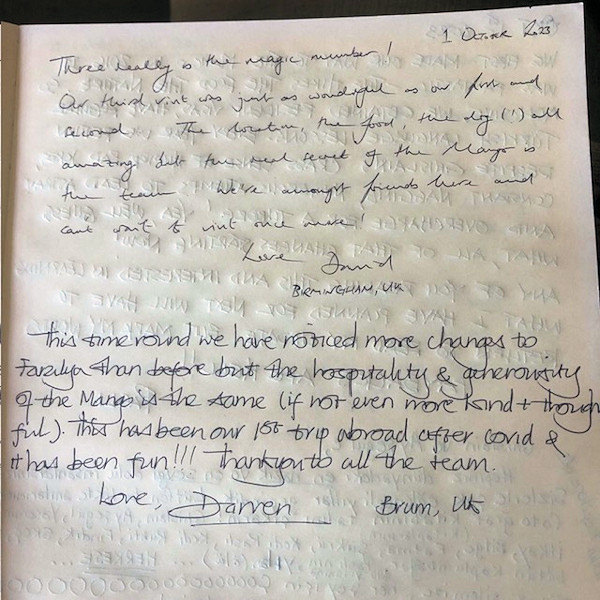 1 October 2023
Three really is the magic number!
Our third visit was just as wonderful as our first and
second. The location, the food, the dog (!) all
amazing but the real secret of the Mango is
the team. We're amongst friends here and
can't wait to visit once more!
Love David
BIRMINGHAM, UK
This time round we have noticed more changes to
Faralya than before but the hospitality & generousity
of the Mango is the same (if not even more kind + though
ful). This has been our 1st trip abroad after covid &
it has been fun!!! Thankyou to all the team.
Love, Darren Brum, UK